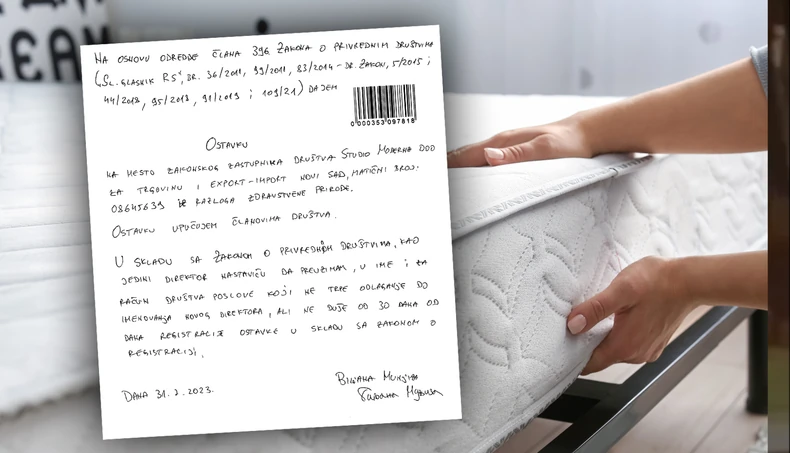 EAM
NA OSNOVU ODREDBE ČLANA 396 ZAKONA O PRIVREDNIM DRUŠTVIMA
(SL. GLASNIK RS", BR. 36/2011, 99/2011, 83/2014 - DR. ZAKON, 5/2015 ;
44/2018, 95/2018, 91/2019 i 109/21) DAJEM
0 000353 097818
OSTAVKU
NA MESTO ZAKONSKOG ZASTUPNIKA DRUŠTVA STUDIO MODERNA DOO
ZA TRGOVINU I EXPORT-IMPORT NOVI SAD, MATIČNI BROJ:
08645639 IZ RAZLOGA ZDRAVSTVENE PRIRODE.
OSTAVKU UPUĆUJEM ČLANOVIMA DRUŠTVA.
U SKLADU SA ZAKONOM O PRIVREDNIM DRUŠTVIMA, KAO
JEDINI DIREKTOR NASTAVIĆU DA PREUZIMAM, U IME i ZA
RAČUN DRUŠTVA POSLOVE KOJI NE TRPE ODLAGANJE DO
IMENOVANJA NOVOG DIREKTORA, ALI NE DUŽE OD 30 DANA OD
DANA REGISTRACIJE OSTAVKE U SKLADU SA ZAKONOM O
REGISTRACIJI.
DANA 31. . 2023.
BILJANA